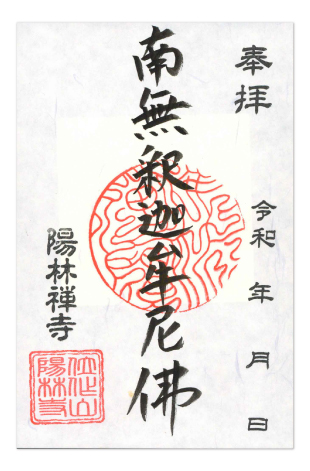 奉拝
令和　年　月　日
南無釈迦牟尼佛
陽林禅寺
陽林寺